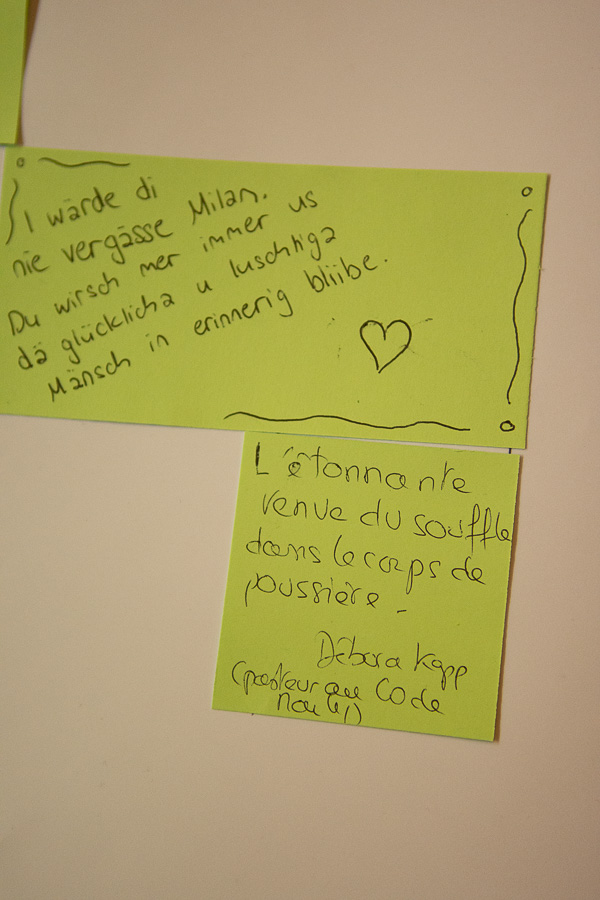 I wärde di
nie vergässe Milan.
Du wirsch mer immer us
dä glücklicha u luschtiga
Mänsch in erinnerig bliibe.
L'étonnante
venue du souffle
dans le corps de
poussière -
Débora Kapp
(pasteur au